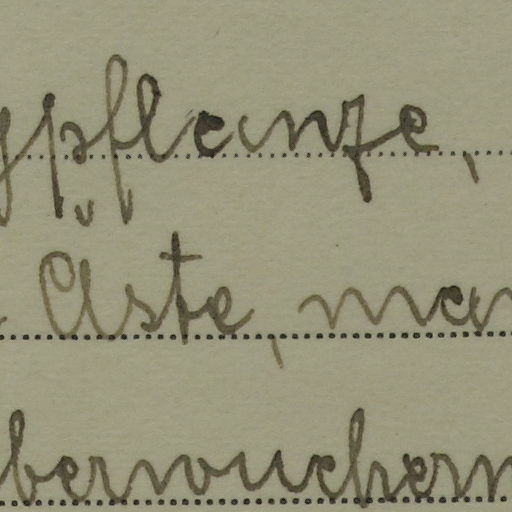 pflanze,
Äste, man
berwuchern